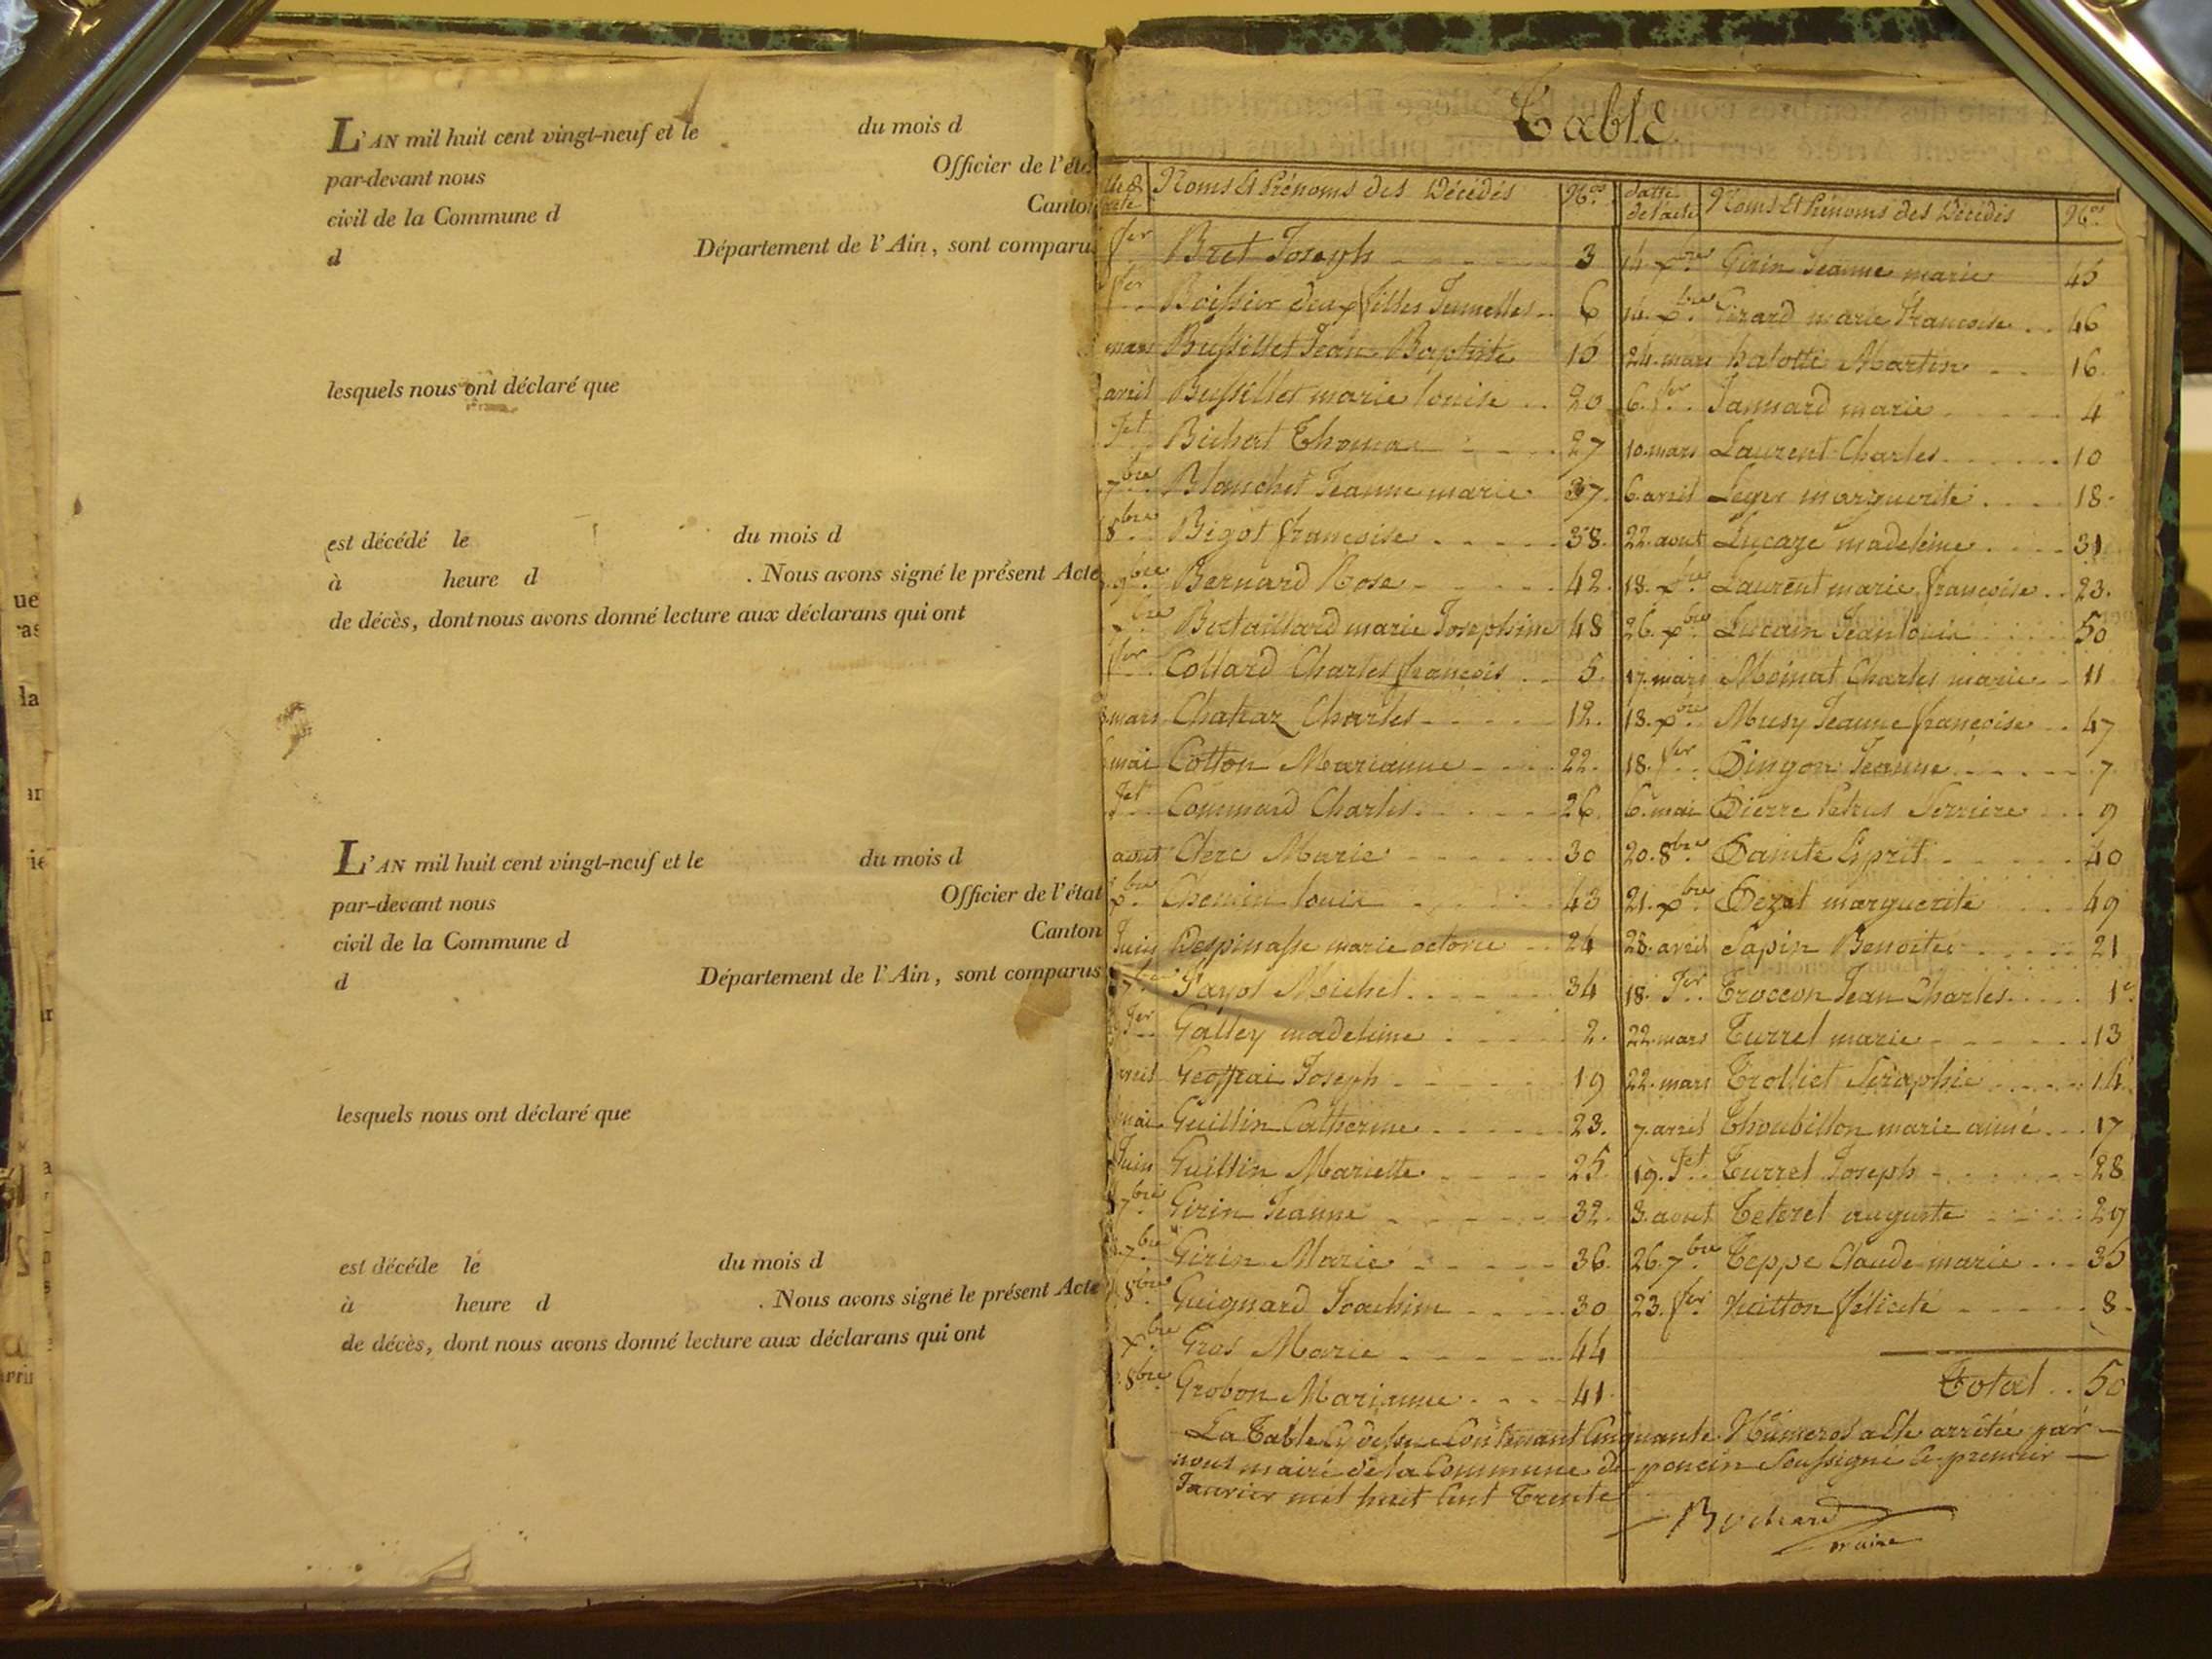 L'AN mil huit cent vingt-neuf et le du mois d
par-devant nous Officier de l'état
civil de la Commune d Canton
d Département de l'Ain, sont comparus
lesquels nous ont déclaré que
est décédé le du mois d
à heure d . Nous avons signé le présent Acte
de décès, dont nous avons donné lecture aux déclarans qui ont
L'AN mil huit cent vingt-neuf et le du mois d
par-devant nous Officier de l'état
civil de la Commune d Canton
d Département de l'Ain, sont comparus
lesquels nous ont déclaré que
est décédé le du mois d
à heure d . Nous avons signé le présent Acte
de décès, dont nous avons donné lecture aux déclarans qui ont
Table
Noms Et Prénoms des Décédés Nos
fer Bret Joseph 3
fer Boissier deux filles Jumelles 6
mars Bussillet Jean Baptiste 15
avril Bussillet marie louise 20
Jet Bichat Thomas 27
7bre Blanchet Jeanne marie 37
8bre Bigot françoise 38
9bre Bernard Rose 42
Bertaillard marie Josephine 48
fer Collard Charles françois 5
mars Chatraz Charles 12
mai Cotton Marianne 22
Jet Commard Charles 26
aout Clerc Marie 30
xbre Chenein louis 43
Juin Despinasse marie octovie 24
7bre Payot Michel 34
Jer Galley madeleine 2
avril Geoffrai Joseph 19
mai Guillin Catherine 23
Juin Guillin Mariette 25
7bre Girin Jeanne 32
7bre Girin Marie 36
8bre Guignard Joachim 30
xbre Gros Marie 44
8bre Grobon Marianne 41
datte de l'acte Noms Et Prénoms des Décédés Nos
14 xbre Girin Jeanne marie 45
16 xbre Girard marie françoise 46
24 mars halotte Martin 16
6 fer Jannard marie 4
10 mars Laurent Charles 10
6 avril Leger marguerite 18
22 aout Lucaze madeleine 31
18 xbre Laurent marie françoise 23
26 xbre Lucain Jean louis 50
17 mars Moinat Charles marie 11
18 xbre Musy Jeanne françoise 47
18 fer Pingon Jeanne 7
6 mai Pierre Petrus Ferriere 9
20 8bre Painte Esprit 40
21 xbre Pezat marguerite 49
28 avril Sapin Benoite 21
18 Jer Troccon Jean Charles 1er
22 mars Turrel marie 13
22 mars Trolliet Séraphie 14
7 avril Thoubillon marie aimé 17
19 Jet Turrel Joseph 28
3 aout Teterel auguste 29
26 7bre Teppe Claude marie 35
23 fer Vuitton félicité 8
Total 50
La Table Cy dessus Contenant Cinquante Numeros a Ete arrêtée par
nous maire de la Commune de poncin Soussigné le premier
Janvier mil huit Cent Trente
Bochard
maire